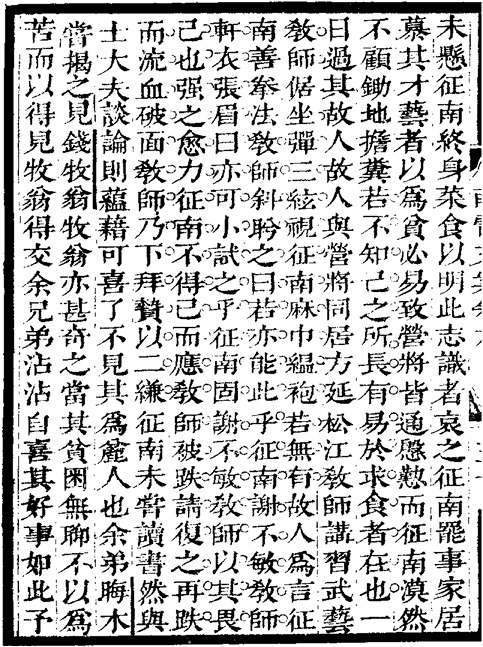 未懸征南終身菜食以明此志識者哀之征南罷事家居
慕其才藝者以爲貧必易致營將皆通慇懃而征南漠然
不顧鋤地擔糞若不知己之所長有易於求食者在也一
日過其故人故人與營將同居方延松江教師講習武藝
教師倨坐彈三絃視征南麻巾縕袍若無有故人爲言征
南善拳法教師斜盻之曰若亦能此乎征南謝不敏教師
軒衣張眉曰亦可小試之乎征南固謝不敏教師以其畏
己也强之愈力征南不得已而應教師被跌請復之再跌
而流血破面教師乃下拜贄以二縑征南未嘗讀書然與
士大夫談論則蘊藉可喜了不見其爲麄人也余弟晦木
嘗揭之見錢牧翁牧翁亦甚奇之當其貧困無聊不以爲
苦而以得見牧翁得交余兄弟沾沾自喜其好事如此予